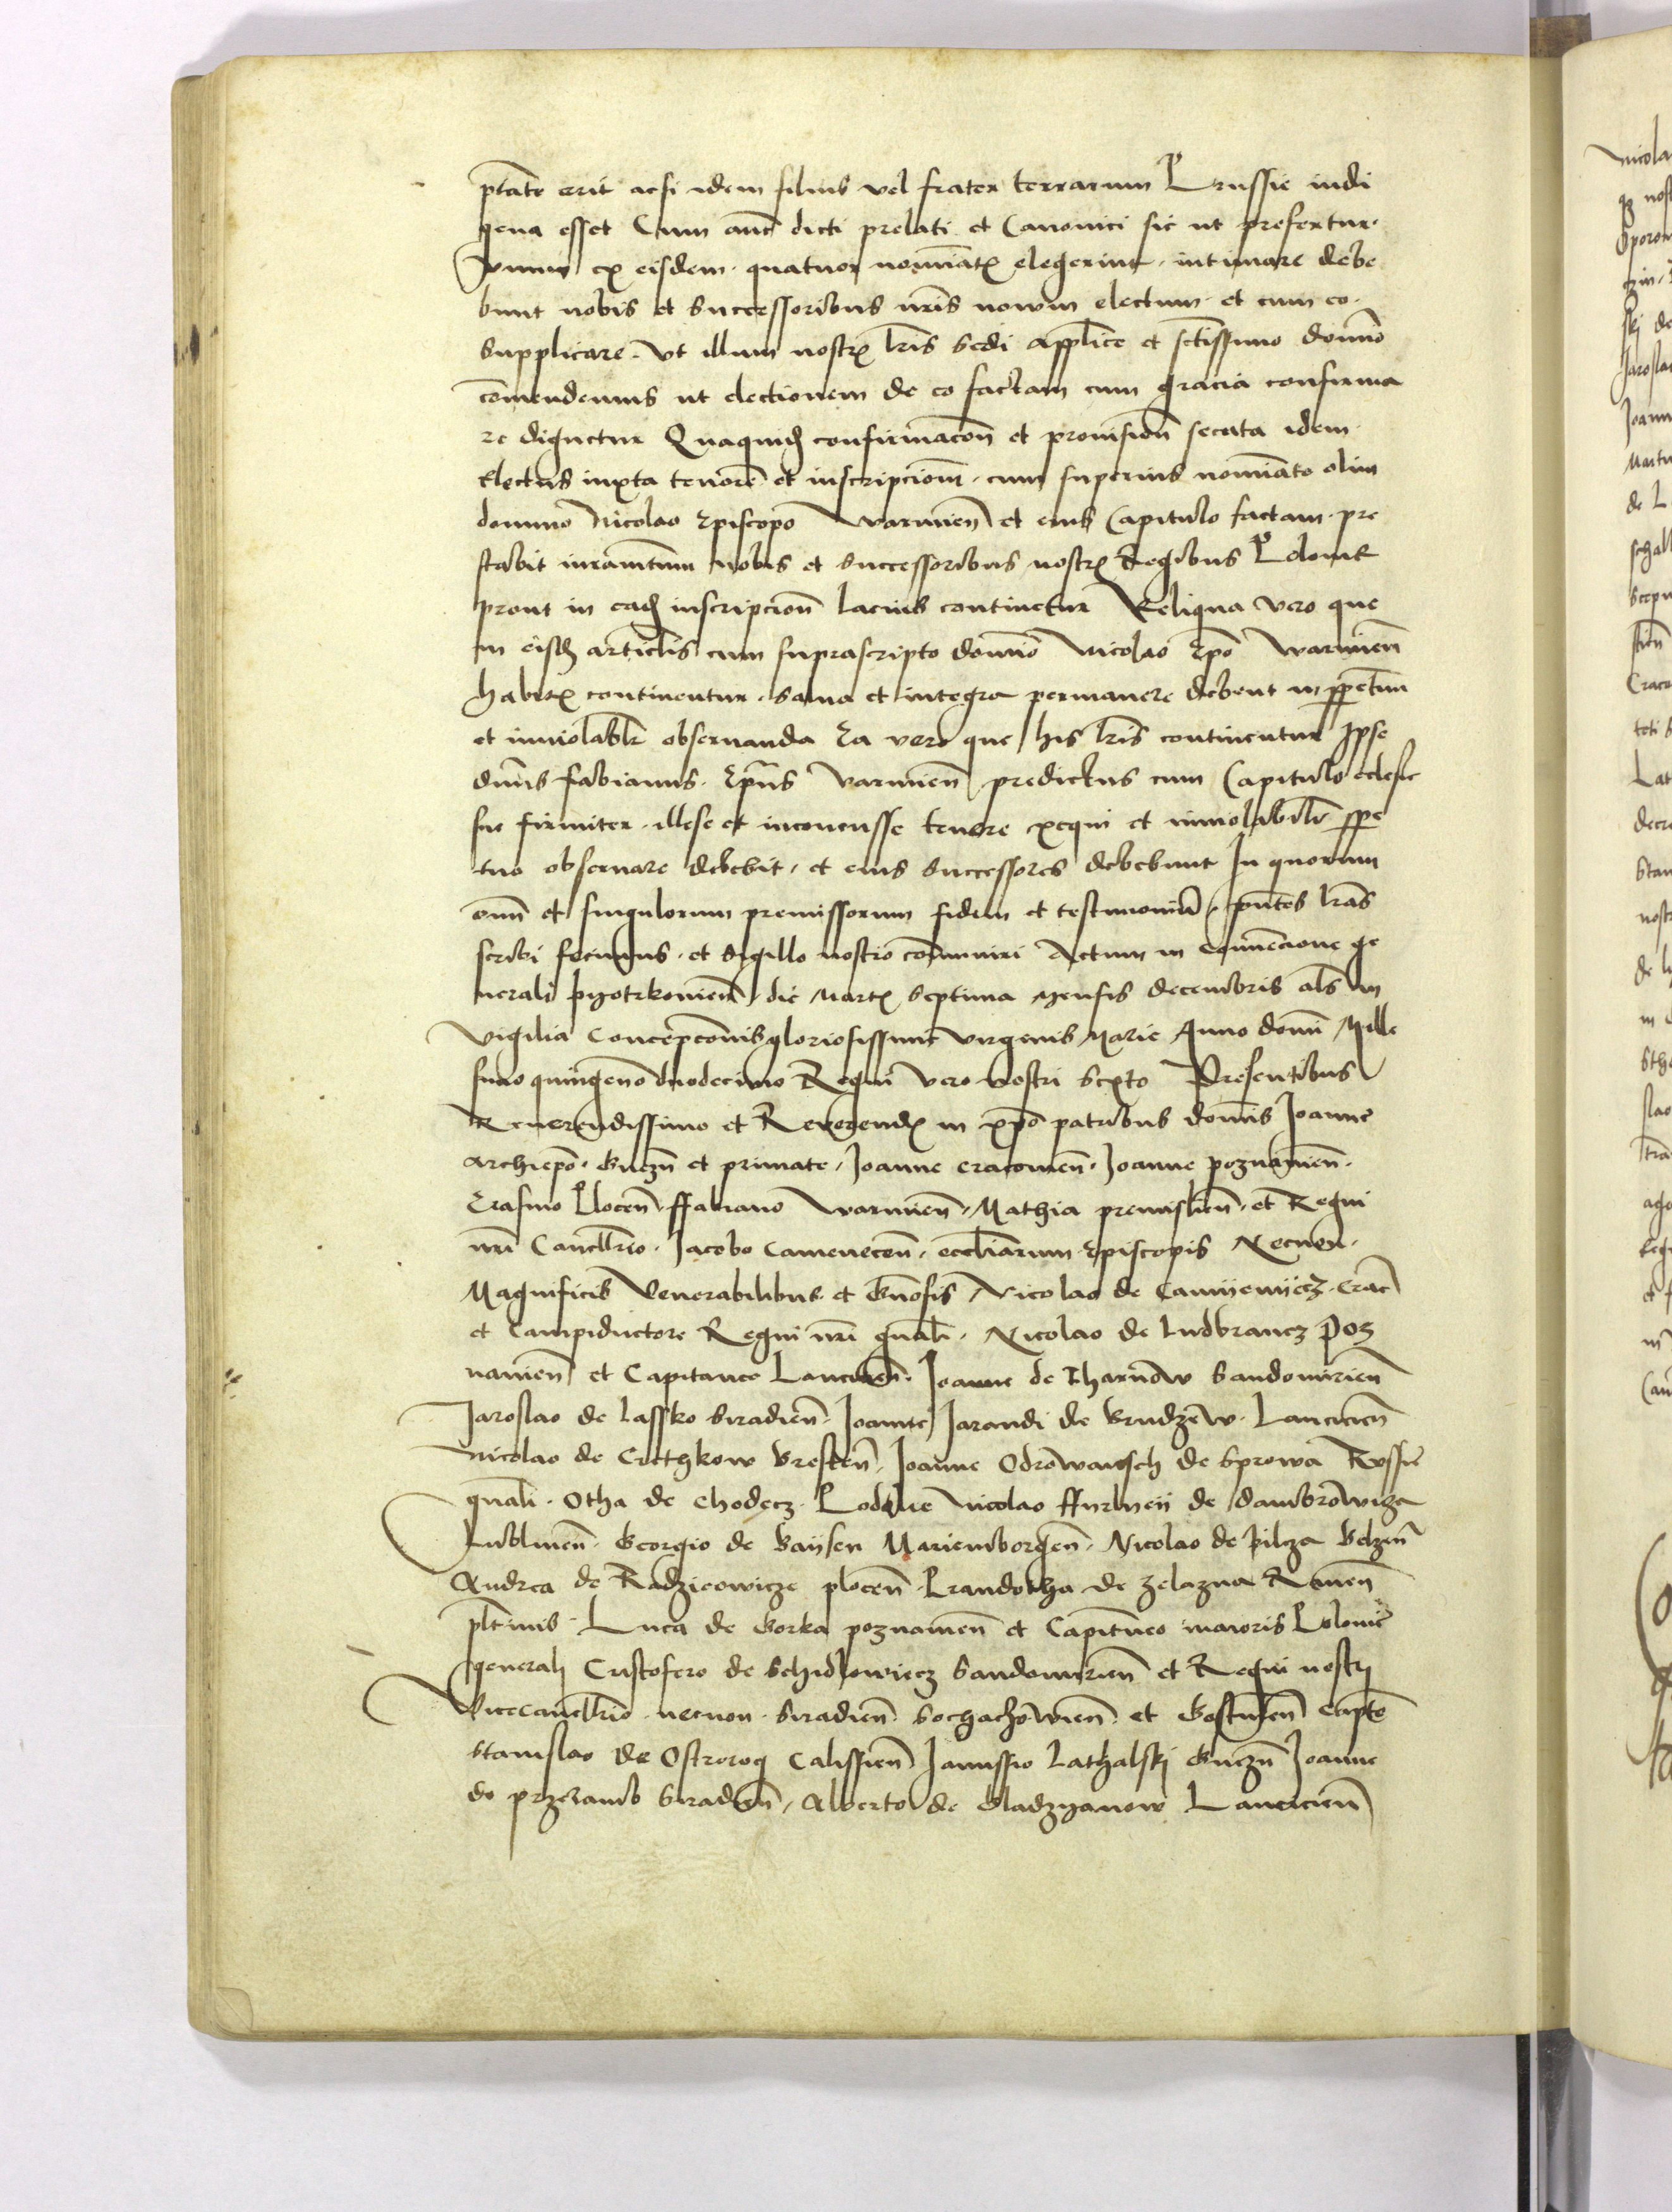 ptate erit acsi idem filius vel frater terrarum Prussie indi
gena esset Cum autē dicti prelati et Canonici sic ut prefertur
vnum ex eisdem quatuor nomiatꝭ elegerint intimare debe
bunt nobis et Successoribus nr̄is nowm electum et cum eo
Supplicare vt illum nostrꝭ lr̄is Sedi applice et sctissimo domino
cōmendemus ut electionem de eo factam cum gracia confirma
re dignetur Quaquidē confirmacōn̄ et prouision̄ secuta idem
Electus iuxta tenorē et inscripcionē cum superius nomiato olim
domino Nicolao Episcopo Warmien̄ et eius Capitulo factam pre
stabit iuramtum nobis et Successoribus nostrꝭ Regibus Polonie
prout in eadē inscripcion̄ lacius continetur Reliqua vero que
in eisdē articlis cum suprascripto domino Nicolao Epō Warmien̄
habitꝭ continentur salua et integra permanere debent in ꝑpetuū
et inuiolablr̄ obseruanda Ea vero que his lr̄is continentur Ipse
dn̄s Fabianus Ep̄us Varmien̄ predictus cum Capitulo eclesie
sue firmiter illese et inconcusse tenere exequi et inuiolabilr̄ ꝑpe
tuo obseruare debebit et eius Successores debebunt In quorum
omn̄ et singulorum premissorum fidem et testimoniū pn̄tes lr̄as
scribi fecimus et Sigillo nostro cōmuniri Actum in Conuencione ge
nerali pyotrkouien̄ die Martꝭ Septima mensis decembris al̄s in
Vigilia Concepcōnis gloriosissime virginis Marie Anno domī Mille
simo quingen̄o duodecimo Regni vero nostri Sexto Presentibus
Reuerendissimo et Reuerendꝭ in xpō patribus domīs Joanne
archiepō Gnezn̄ et primate Joanne Cracouien̄ Joanne poznanien̄
Erasmo Plocen̄ ffabiano Warmien̄ Mathia premislien̄ et Regni
nr̄i Cancellr̄io Jacobo Camenecen̄ eccliarum Episcopis Necnon
Magnificis Venerabilibus et Gn̄osis Nicolao de Camyenyecz Crac̄
et Campiductore Regni nr̄i gn̄ali Nicolao de Lubrancz Poz
nanien̄ et Capitaneo Lancicien̄ Joanne de Tharnōw Sandomirien̄
Jaroslao de Lassko Siradien̄ Joanne Jarandi de Brudzēw Lancicien̄
Nicolao de Crethkow Bresten̄ Joanne Odrōwansch de Sprowa Russie
gn̄ali Otha de Chodecz Podolie Nicolao ffirleii de dambrōwiza
Lublinen̄ Georgio de Baysen Mariemborgen̄ Nicolao de pilcza Belzen̄
Andrea de Radzieowicze plocen̄ Prandotha de zelazna Rauen̄
pltinis Luca de Gorka poznanien̄ et Capitneo maioris Polonie
generalj Cristofero de Schidlowiecz Sandomirien̄ et Regni nostrj
Vicecancellr̄io necnon Siradien̄ Sochachowien̄ et Gostinen̄ Capte
Stanislao de Ostrorog Calissien̄ Janussio Lathalskj Gnezn̄ Joanne
de przeramb Siradien̄ Alberto de Gladzyanow Lancicien̄